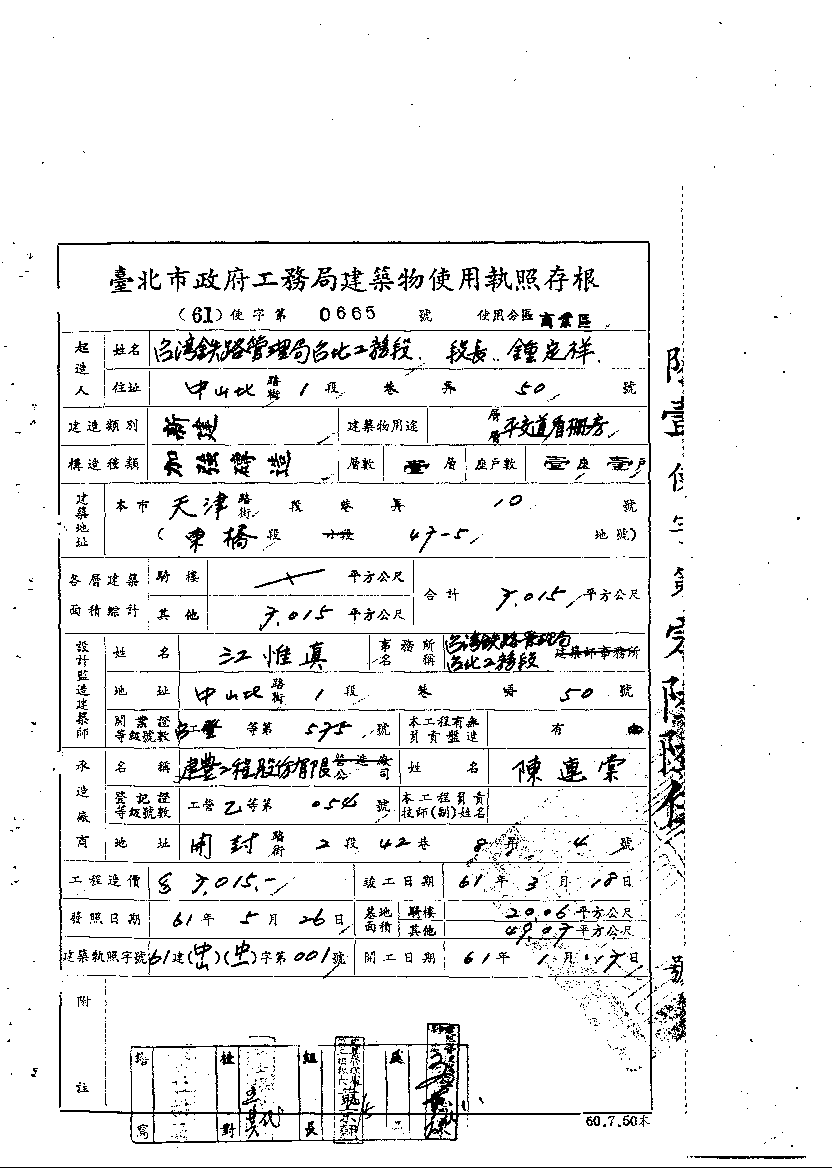 臺北市政府工務局建築物使用執照存根
(61)使字第 0665 號 使用分區 商業區
起造人 姓名 台湾鉄路管理局台北工務段 段長 鍾定祥
住址 中山北 路街 1 段 巷 弄 50 號
建造類別 新建 建築物用途 平交道看柵房
構造種類 加強磚造 層數 壹 層 座戶數 壹 座 壹 戶
建築地址 本市 天津 路街 段 巷 弄 10 號
(東橋 段 小段 47-5 地號)
各層建築面積綜計 騎樓 平方公尺 合計 7.015 平方公尺
其他 7.015 平方公尺
設計監造建築師 姓名 江惟真 事務所名稱 台湾鉄路管理局台北工務段 建築師事務所
地址 中山北 路街 1 段 巷 50 號
開業證等級號數 等第 575 號 本工程有無負責監造 有
承造廠商 名稱 建豐工程股份有限公司 營造廠 姓名 陳連棠
登記證等級號數 工營 乙 等第 054 號 本工程負責技師(副)姓名
地址 開封 路街 2 段 42 巷 8 弄 4 號
工程造價 7,015.- 竣工日期 61 年 3 月 18 日
發照日期 61 年 5 月 26 日 基地面積 騎樓 20.06 平方公尺
其他 49.07 平方公尺
建築執照字號 61建(中山)(中)字第001號 開工日期 61 年 1 月 17 日
附註
校對 組長
60.7.50本